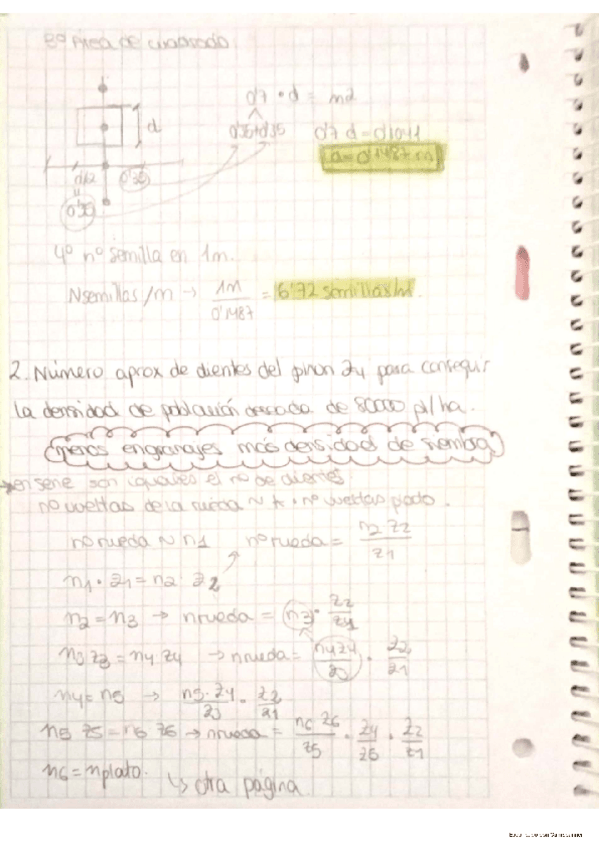 2º Area de cuadrado.
0'7 · d = m2
0'35+0'35
0'7 d = 0'1041
d = 0'1487 m
d
d/2
0'35
0'35
4º nº semilla en 1m.
N semillas/m → 1m / 0'1487 = 6'72 semillas/m.
2. Número aprox de dientes del piñon Z4 para conseguir
la densidad de población deseada de 80000 pl/ha.
menos engranajes más densidad de siembra
→ en serie son iguales el nº de dientes.
nº vueltas de la rueda ~ k · nº vueltas plato.
nº rueda ~ n1 nº rueda = n2 Z2 / Z1
n1 · Z1 = n2 · Z2
n2 = n3 → nrueda = n3 · Z2 / Z1
n3 Z3 = n4 Z4 → nrueda = n4 Z4 / Z3 · Z2 / Z1
n4 = n5 → n5 · Z4 / Z3 · Z2 / Z1
n5 Z5 = n6 Z6 → nrueda = n6 Z6 / Z5 · Z4 / Z3 · Z2 / Z1
n6 = nplato. ↳ otra página